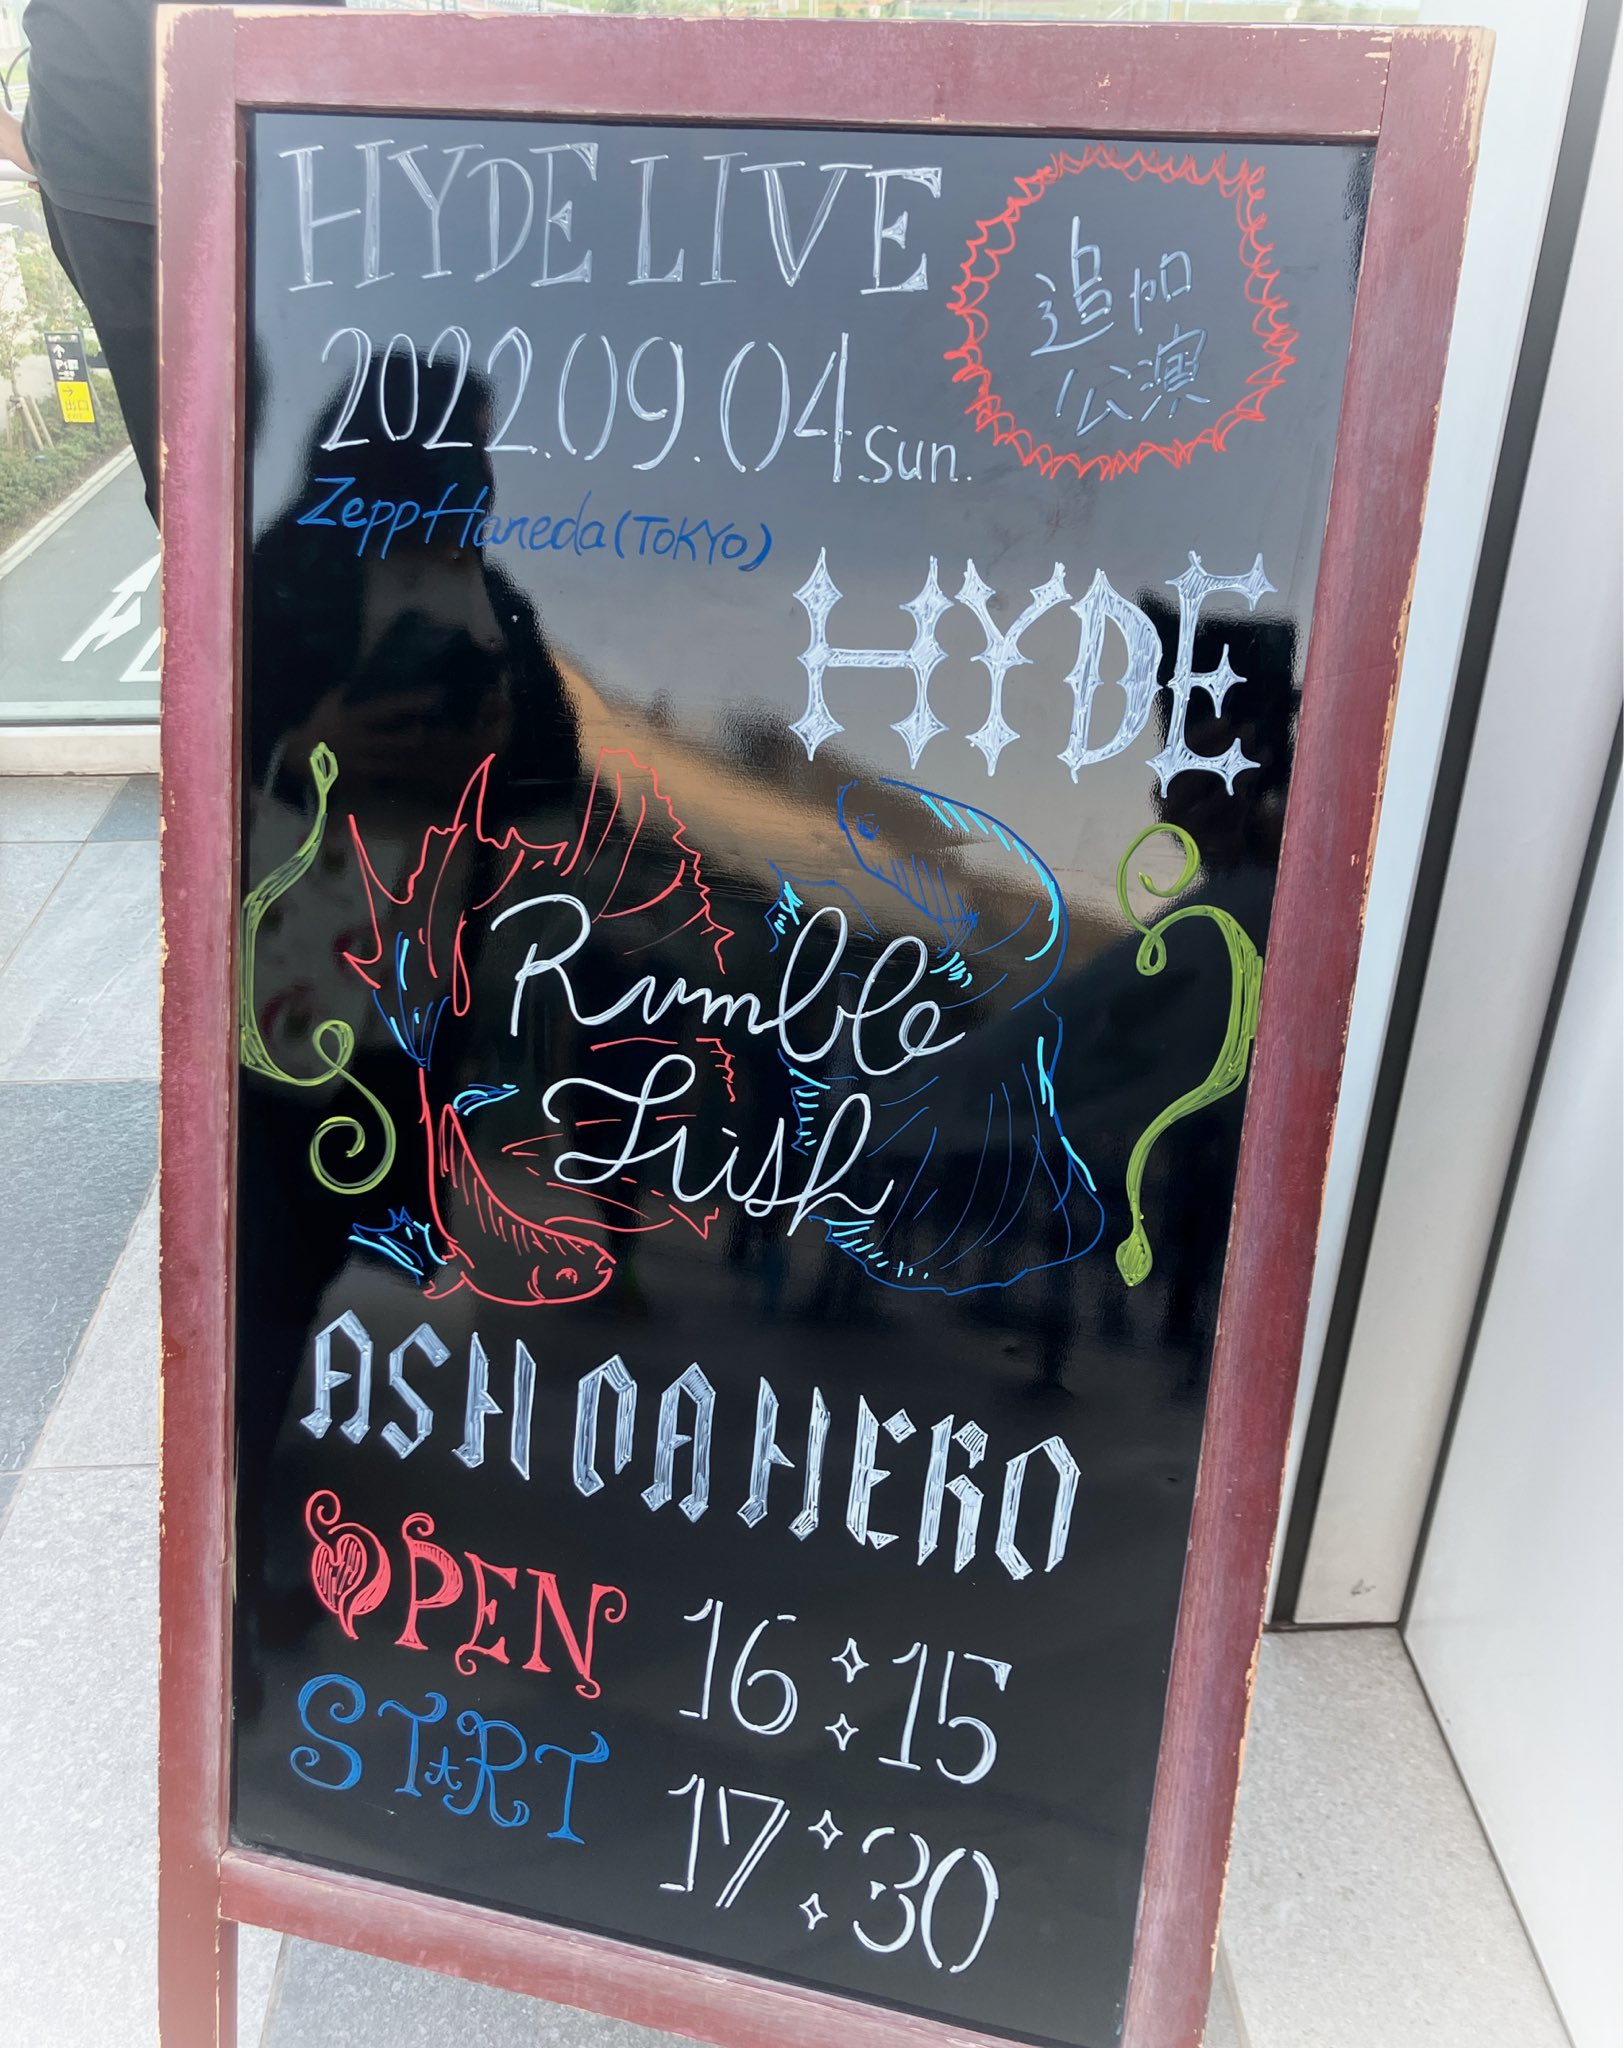 HYDE LIVE
追加
公演
2022.09.04.Sun.
Zepp Haneda (TOKYO)
HYDE
Rumble
Fish
ASH DA HERO
OPEN 16:15
START 17:30
出口